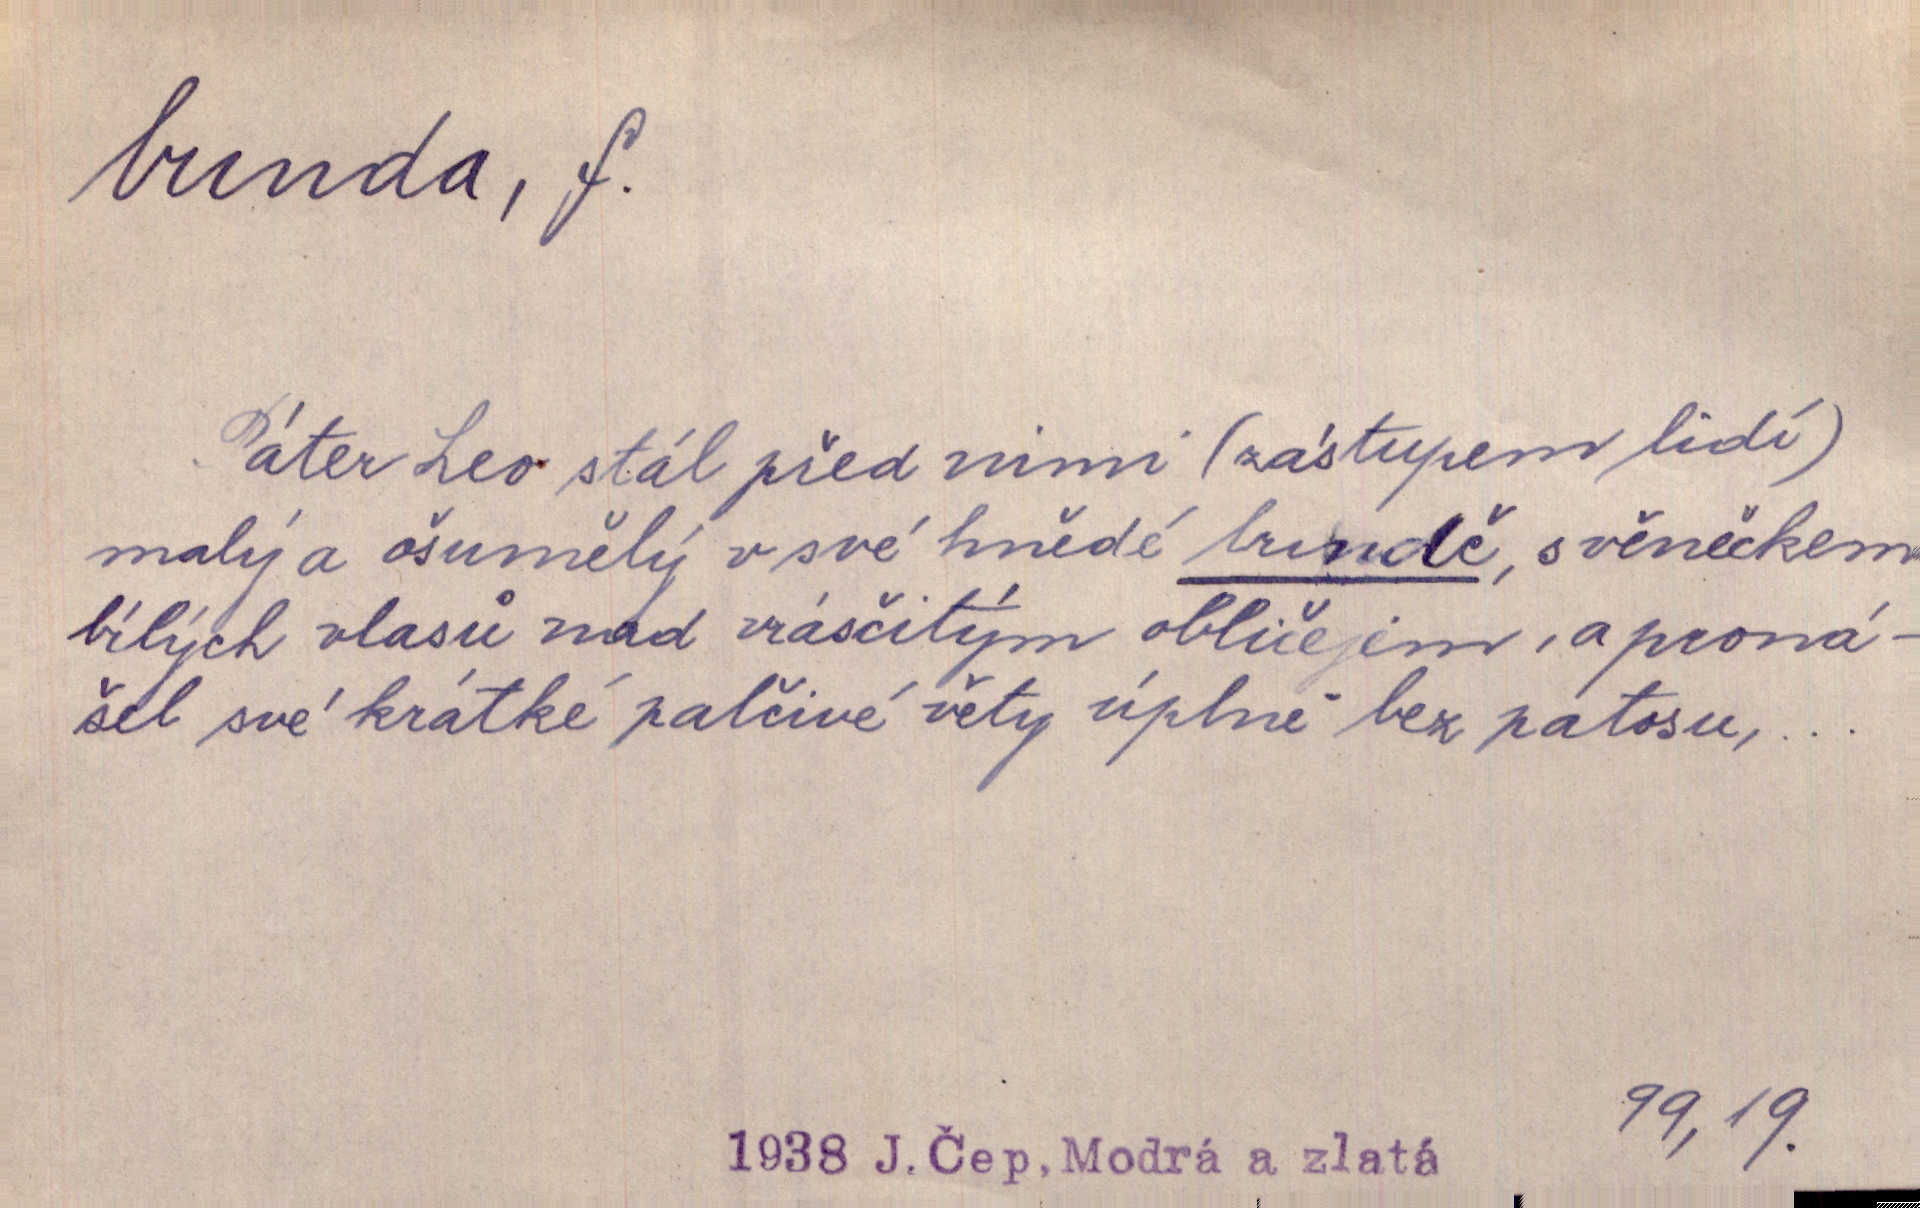 bunda, f.
Páter Leo stál před nimi (zástupem lidí)
malý a ošumělý v své hnědé bundě, s věnečkem
bílých vlasů nad vrásčitým obličejem, a proná-
šel své krátké palčivé věty úplně bez patosu, ...
99, 19.
1938 J. Čep, Modrá a zlatá